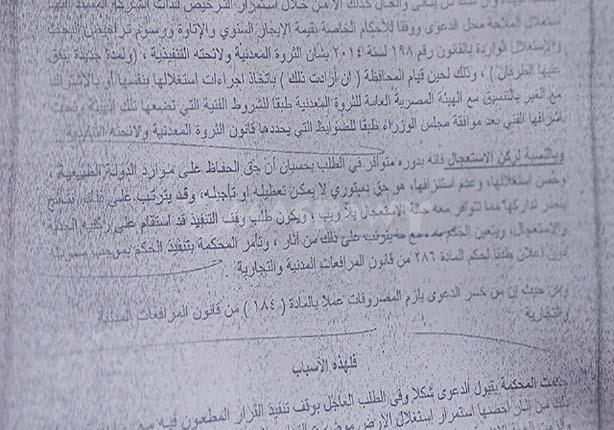 من خلال استمرار الترخيص لذات الشركة
استغلال الملاحة محل الدعوى ووفقا للأحكام الخاصة بقيمة الإيجار السنوي والإتاوة ورسوم تراخيص البحث
والاستغلال الواردة بالقانون رقم ١٩٨ لسنة ٢٠١٤ بشأن الثروة المعدنية ولائحته التنفيذية ، ولمدة جديدة يتفق
عليها الطرفان ) ، وذلك لحين قيام المحافظة ( إن أرادت ذلك ) باتخاذ إجراءات استغلالها بنفسها أو بالاشتراك
مع الغير بالتنسيق مع الهيئة المصرية العامة للثروة المعدنية طبقا للشروط الفنية التي تضعها تلك الهيئة وتحت
اشرافها الفني بعد موافقة مجلس الوزراء طبقا للضوابط التي يحددها قانون الثروة المعدنية ولائحته التنفيذية
وبالنسبة لركن الاستعجال فانه بدوره متوافر في الطلب بحسبان أن حق الحفاظ على موارد الدولة الطبيعية ،
وحسن استغلالها، وعدم استنزافها، هو حق دستوري لا يمكن تعطيله أو تأجيله، وقد يترتب على ذلك نتائج
يتعذر تداركها مما تتوافر معه حالة الاستعجال بلا ريب ، ويكون طلب وقف التنفيذ قد استقام على ركنيه الجدية
والاستعجال، ويتعين الحكم به، مع ما يترتب على ذلك من آثار ، وتأمر المحكمة بتنفيذ الحكم بموجب مسودته
بدون إعلان طبقا لحكم المادة ٢٨٦ من قانون المرافعات المدنية والتجارية .
ومن حيث إن من خسر الدعوى يلزم المصروفات عملا بالمادة ( ١٨٤ ) من قانون المرافعات المدنية
والتجارية
فلهذه الأسباب
حكمت المحكمة بقبول الدعوى شكلا وفي الطلب العاجل بوقف تنفيذ القرار المطعون فيه مع
ذلك من آثار أخصها استمرار استغلال الأرض موضوع